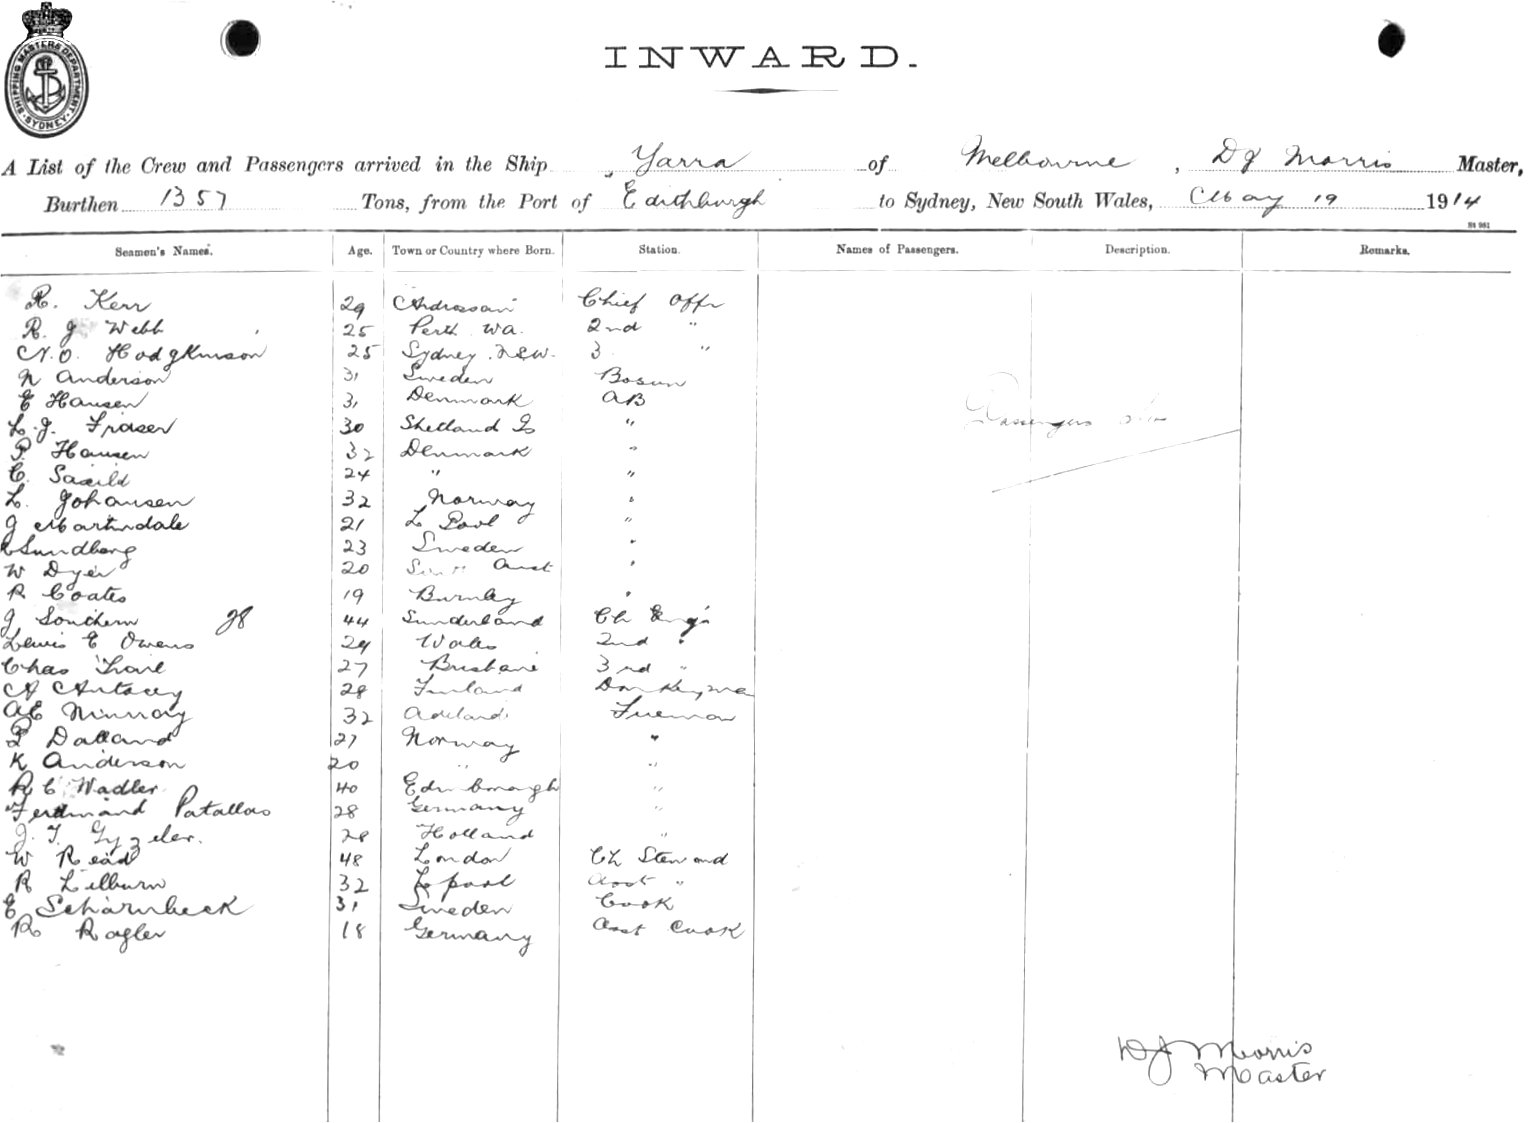 SHIPPING MASTERS DEPARTMENT · SYDNEY ·
INWARD.
A List of the Crew and Passengers arrived in the Ship Yarra of Melbourne, D J Morris Master,
Burthen 1357 Tons, from the Port of Edithburgh to Sydney, New South Wales, May 19 1914
Seamen's Names. Age. Town or Country where Born. Station. Names of Passengers. Description. Remarks.
R. Kerr 29 Ardrossan Chief Offr
R. J Webb 25 Perth WA. 2nd "
N. O. Hodgkinson 25 Sydney NSW. 3 "
N Anderson 31 Sweden Bosun
E Hansen 31 Denmark AB
L. J. Fraser 30 Shetland Is "
P. Hansen 32 Denmark "
C. Saxild 24 " "
L. Johansen 32 Norway "
J Martindale 21 L Pool "
Sundberg 23 Sweden "
W Dyer 20 Aust "
R Coates 19 Burnley "
J Southern 44 Sunderland Ch Eng'r
Lewis E Owens 29 Wales 2nd "
Chas 27 Brisbane 3rd "
A 28 Finland Donkeyma
AE 32 Adelaide Fireman
P Dalland 27 Norway "
K Anderson 20 " "
R C Wadler 40 Edinborough "
Ferdinand Patallas 28 Germany "
J. T. Gyzeler. 28 Holland "
W Read 48 London Ch Steward
R Lilburn 32 L pool Asst "
E Scharnbeck 31 Sweden Cook
R Ragler 18 Germany Asst Cook
Passengers
D J Morris
Master